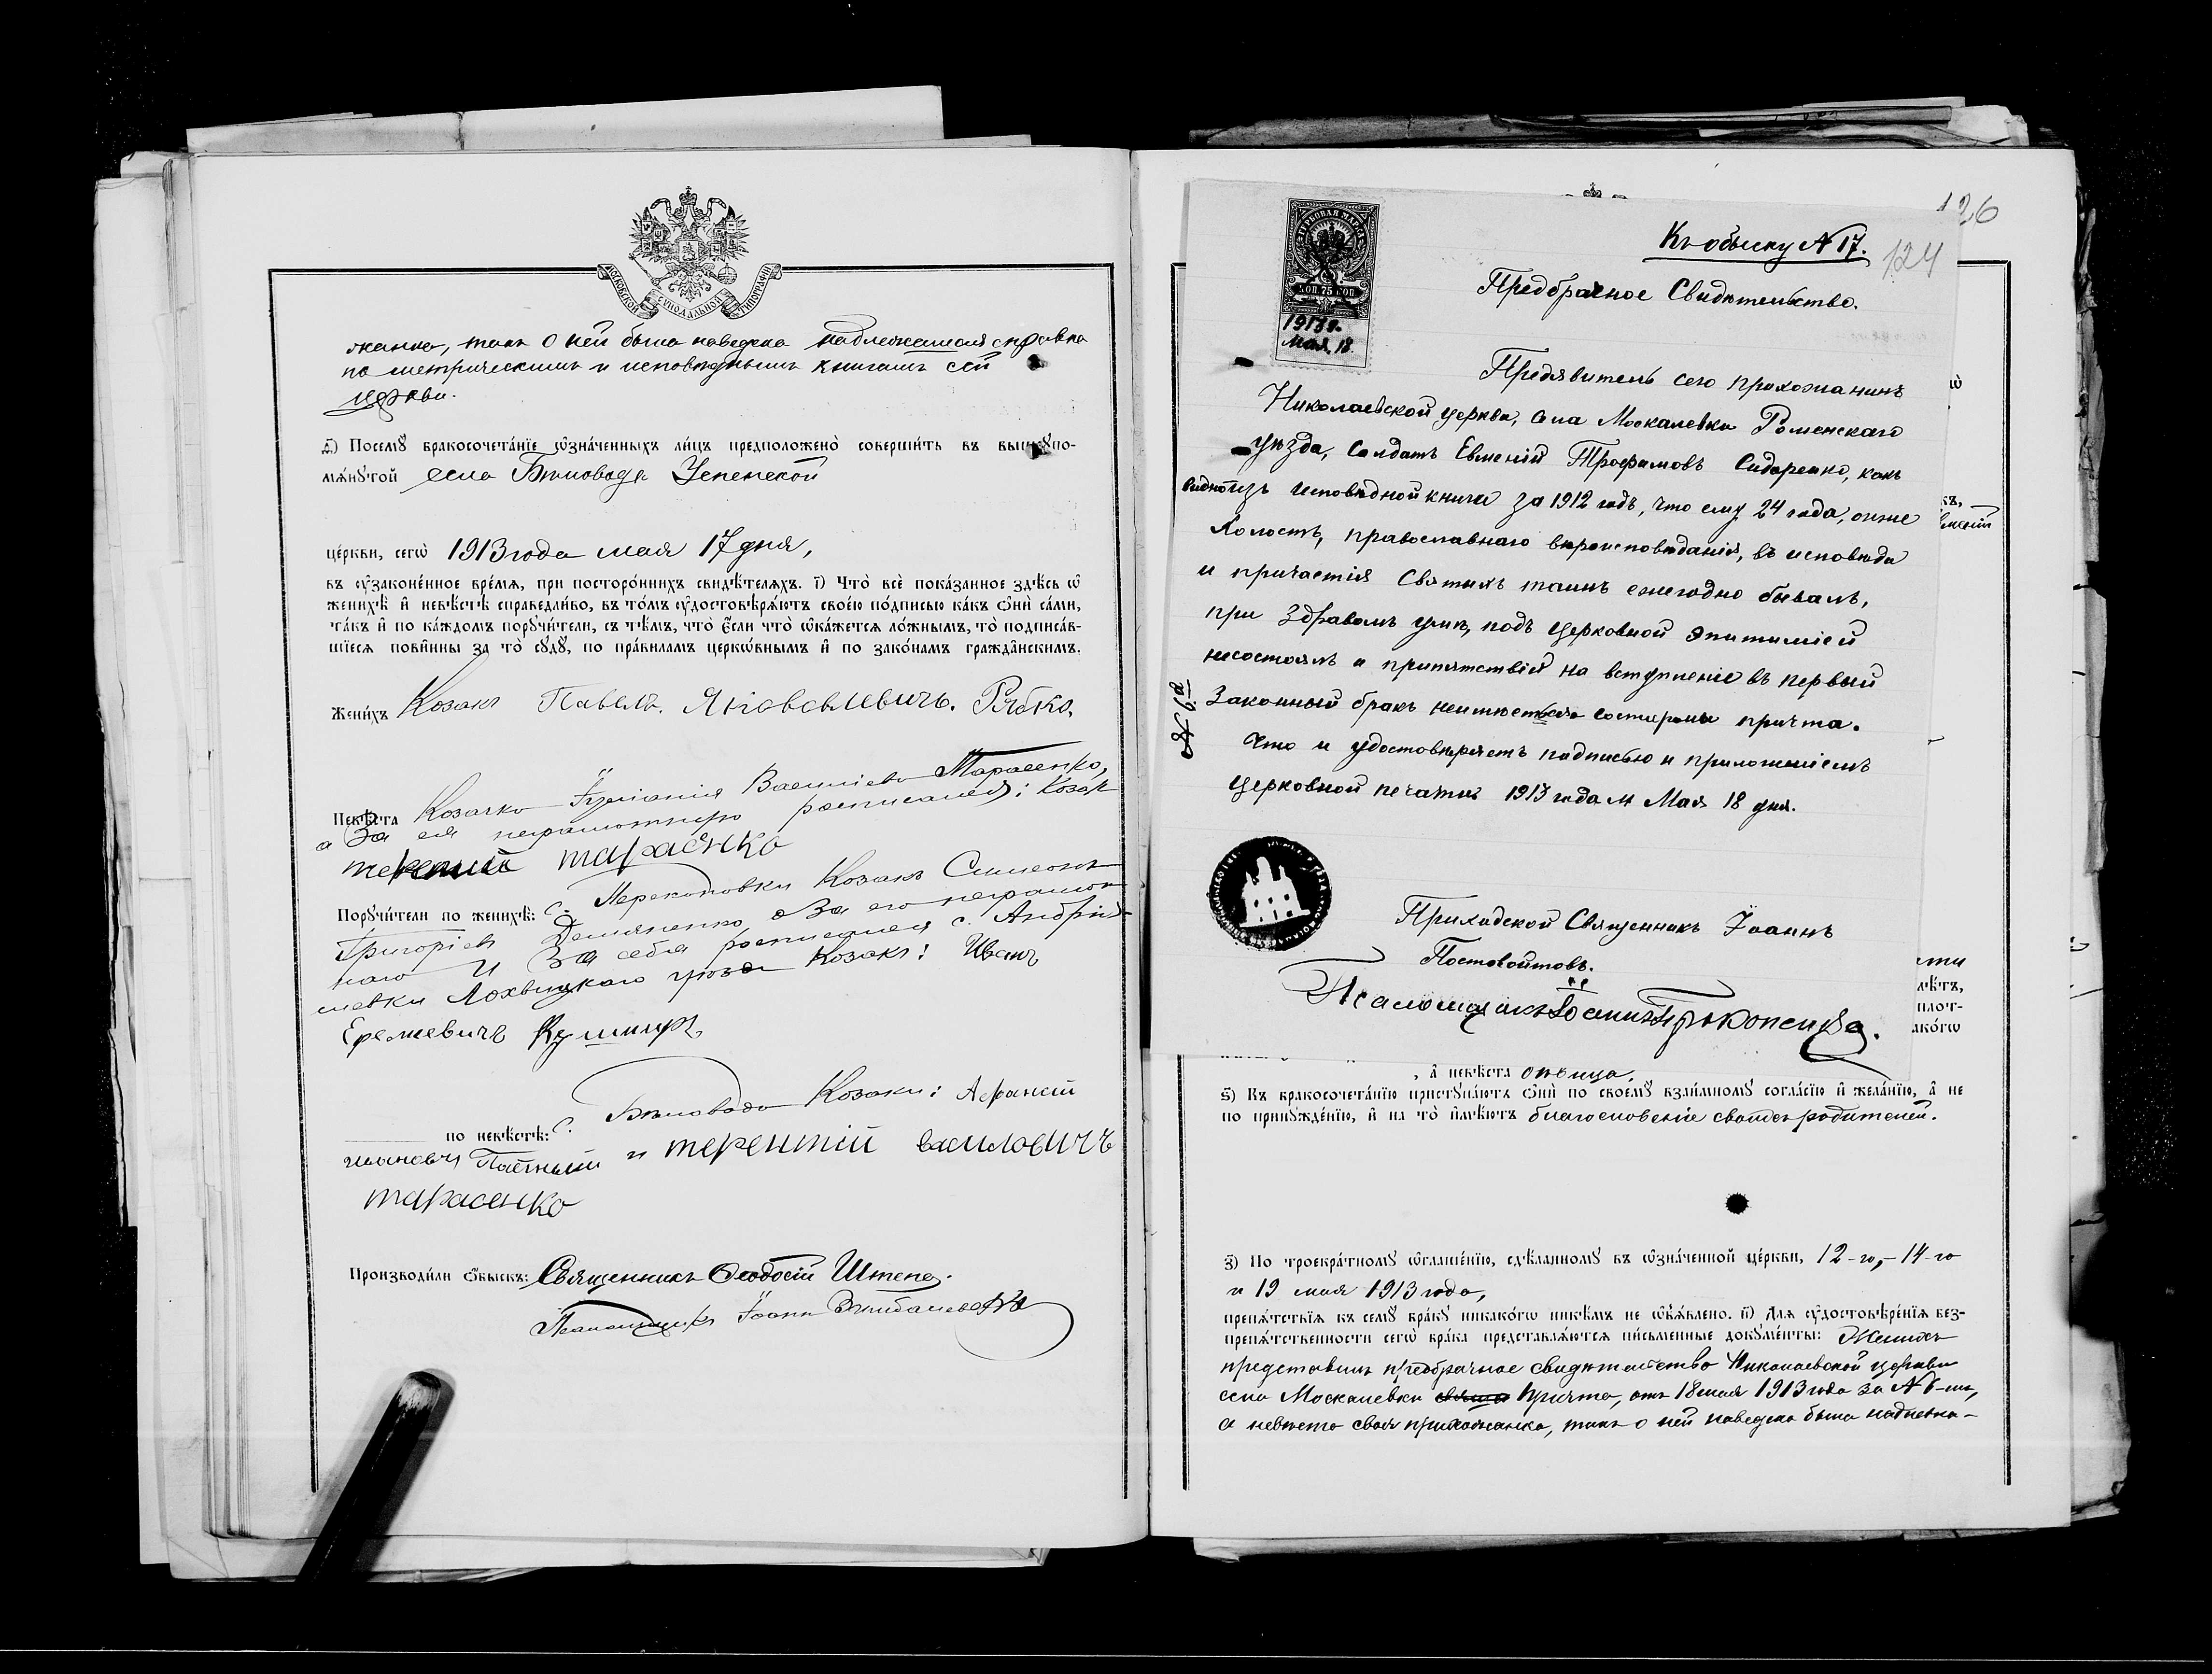 МОСКОВСКОЙ СѴНОДАЛЬНОЙ ТИПОГРАФІИ
жанка, такъ о ней была наведена надлежащая справка
по метрическимъ и исповѣднымъ книгамъ сей
церкви.
Посемꙋ бракосочета́нїе ѡ҆зна́ченныхъ ли́цъ предположено̀ соверши́ть въ вышеꙋпо-
мѧ́нꙋтой села Бѣловода Успенской
це́ркви, сегѡ̀ 1913 года мая 17 дня,
въ ᲂу҆зако́ненное вре́мѧ, при посторо́ннихъ свидѣ́телѧхъ. і҃) Что̀ всѐ пока́занное здѣ́сь ѡ҆
женихѣ̀ и҆ невѣ́стѣ справедли́во, въ то́мъ ᲂу҆достовѣрѧ́ютъ свое́ю по́дписью ка́къ ѻ҆нѝ са́ми,
та́къ и҆ по ка́ждомъ порꙋчи́тели, съ тѣ́мъ, что̀ є҆́сли что̀ ѡ҆ка́жетсѧ ло́жнымъ, то̀ подписа́в-
шїесѧ пови́нны за то̀ сꙋдꙋ̀, по пра́виламъ церкѡ́внымъ и҆ по зако́намъ гражда̂нскимъ.
Жени́хъ Козакъ Павелъ Яковлевичъ Рябко,
Невѣ́ста Козачка Іуліанія Василіева Тарасенко,
а За ея неграмотную росписался: Козак
терентій тарасенко
Порꙋчи́тели по женихѣ̀: с. Перекоповки Козакъ Симеонъ
Григоріевъ Демяненко За его неграмот
наго И За себя росписался с. Андрія-
шевки Лохвицкаго уѣзда Козакъ: Иванъ
Еремеевичъ Кушниръ
по невѣ́стѣ: с. Бѣловода Козаки: Афанасій
и терентій василовичъ
тарасенко
Производи́ли ѻ҆́быскъ: Священникъ Ѳеодосій Штепа.
Псаломщикъ Іоаннъ
126
124
Къ обыску № 17.
ГЕРБОВАЯ МАРКА
КОП. 75 КОП.
1913 г.
мая, 18.
Предбрачное Свидѣтельство.
Предявитель сего прихожанинъ
Николаевской церкви, села Москалевки Роменскаго
уѣзда, Солдатъ Евменій Трофимовъ Сидоренко, какъ
видно изъ исповѣдной книги за 1912 годъ, что ему 24 года, онже
Холостъ, православнаго вѣроисповѣданія, въ исповѣди
и причастія Святыхъ таинъ ежегодно бывалъ,
при Здравомъ умѣ, подъ церковной эпитиміей
несостоялъ и припятствій на вступленіе въ первый
Законный бракъ неимѣетъ со стороны причта.
Что и удостовѣряетъ подписью и приложеніемъ
Церковной печати 1913 года м Мая 18 дня.
№ 6й
Приходской Священникъ Іоаннъ
Постовойтовъ.
Псаломщикъ Іоаннъ
, а҆ невѣ́ста дѣвица.
ѕ҃) Къ бракосочета́нїю пристꙋпа́ютъ ѻ҆нѝ по своемꙋ̀ взаи́мномꙋ согла́сїю и҆ жела́нїю, а҆ не
по принꙋжде́нїю, и҆ на то̀ и҆мѣ́ютъ благословеніе своихъ родителей.
з҃) По троекра́тномꙋ ѡ҆глаше́нїю, сдѣ́ланномꙋ въ ѡ҆зна́ченной це́ркви, 12-го, 14-го
и 19 мая 1913 года,
препѧ́тствїѧ къ семꙋ̀ бра́кꙋ никако́гѡ никѣ́мъ не ѡ҆б̾ѧ́влено. и҃) Длѧ ᲂу҆достовѣре́нїѧ без-
препѧ́тственности сегѡ̀ бра́ка представлѧ́ютсѧ пи́сьменные докꙋме́нты: Женихъ
представилъ предбрачное свидѣтельство Николаевской церкви
села Москалевки причта, отъ 18 мая 1913 года за № 6-мъ,
а невѣста своя прихожанка, такъ о ней наведена была надлежа-